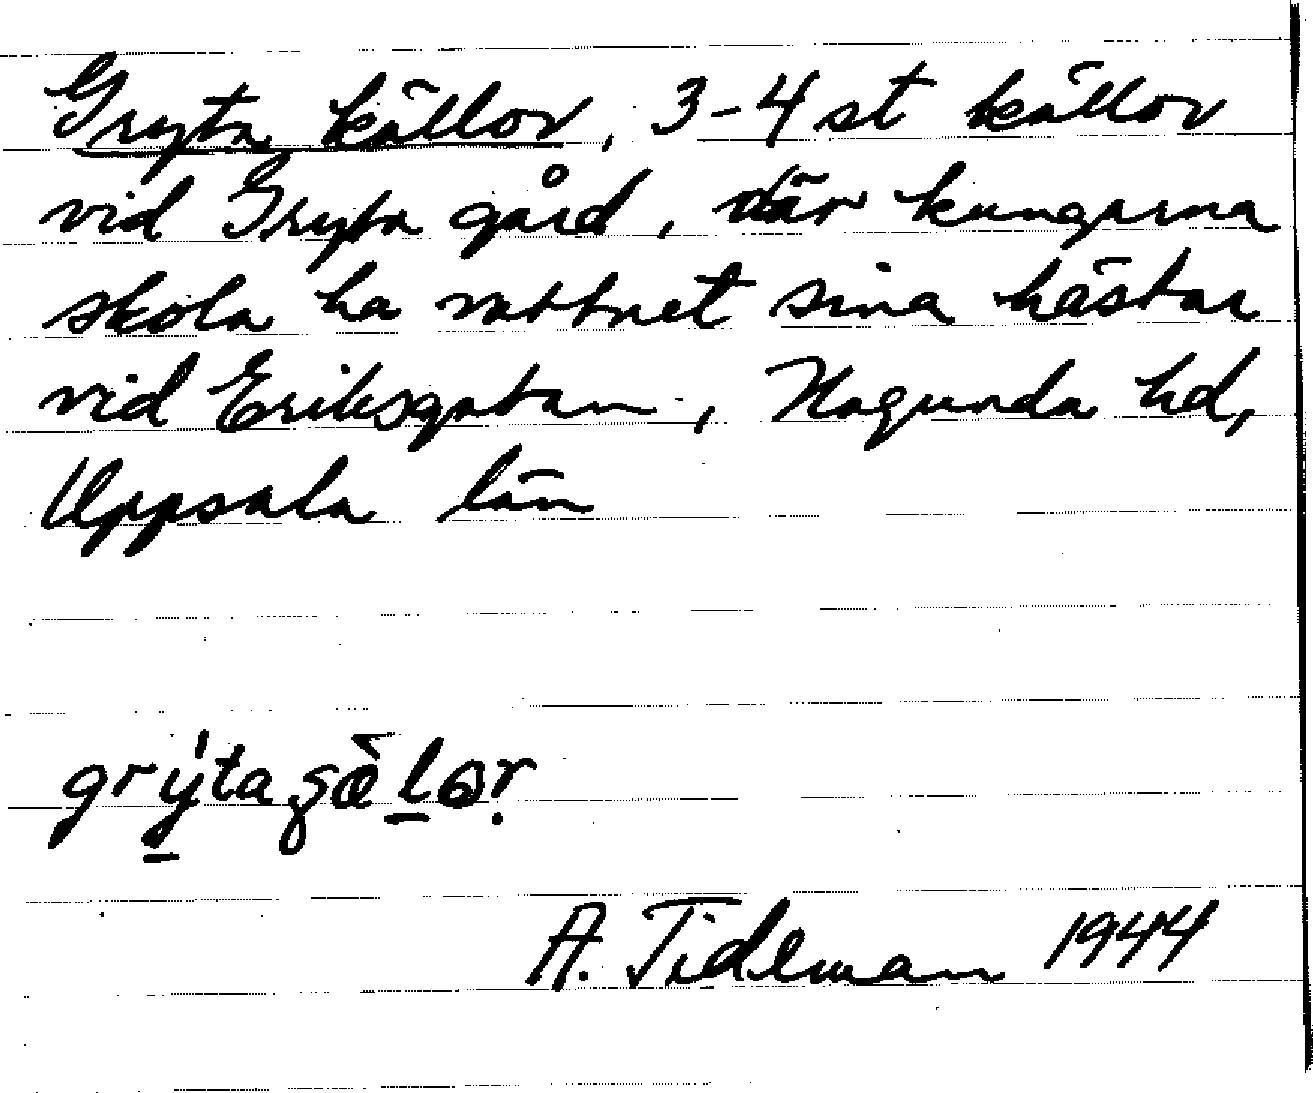 Gryta källor, 3-4 st källor
vid Gryta gård, där kungarna
skola ha vattnet sina hästar
vid Eriksgatan, Hagunda hd,
Uppsala län
A. Tideman 1944